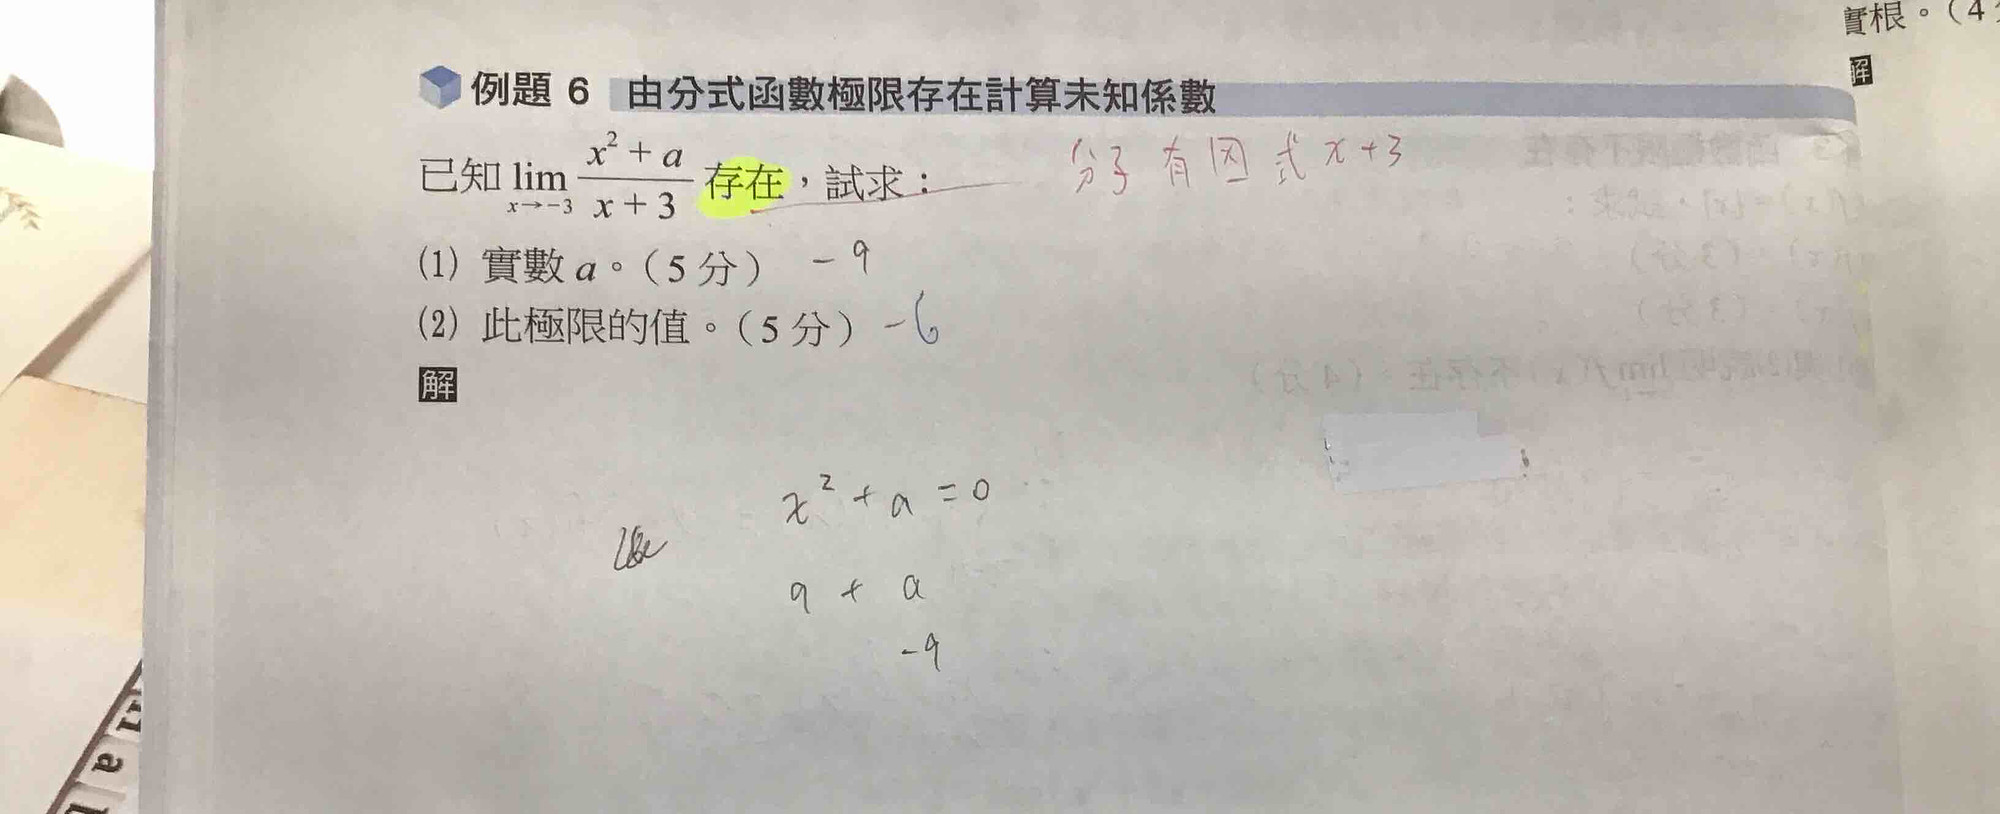 實根。(4
解
例題 6 由分式函數極限存在計算未知係數
已知 lim x→-3 (x² + a)/(x + 3) 存在,試求: 分子有因式 x+3
(1) 實數 a。(5 分) -9
(2) 此極限的值。(5 分) -6
解
x² + a = 0
9 + a
-9